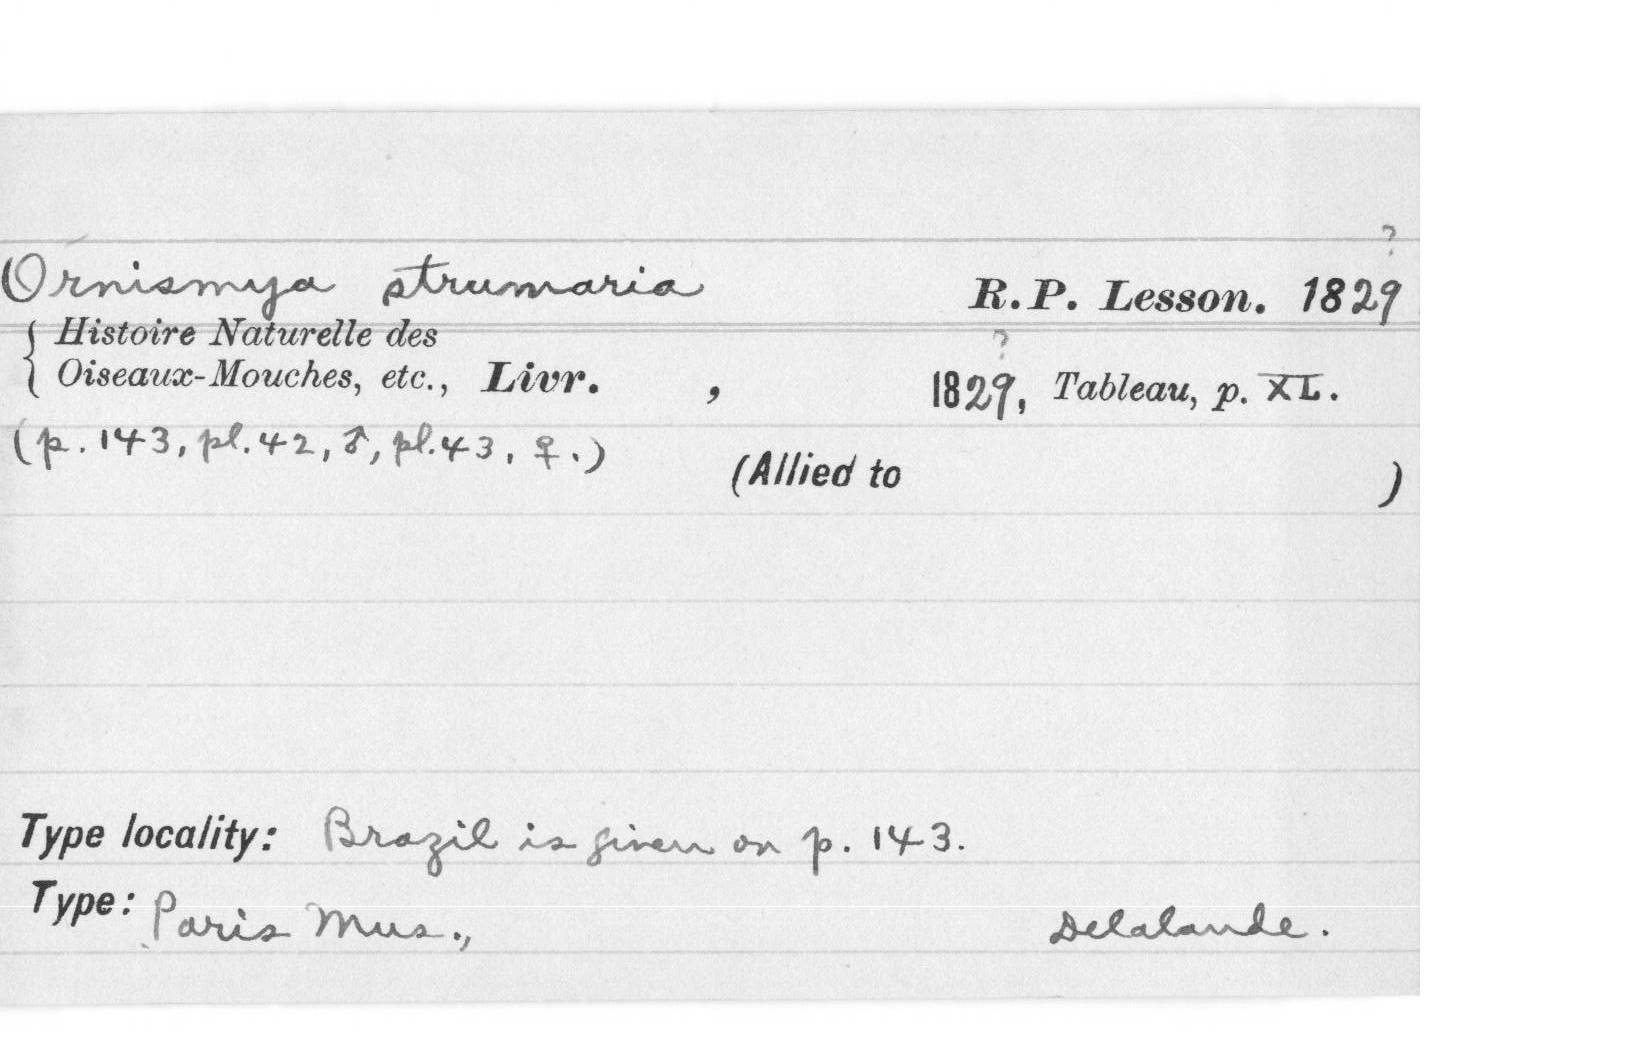 ?
Ornismya strumaria R.P. Lesson. 1829
Histoire Naturelle des
?
Oiseaux-Mouches, etc., Livr. , 1829, Tableau, p. XL.
(p. 143, pl. 42, ♂, pl. 43, ♀.)
(Allied to )
Type locality: Brazil is given on p. 143.
Type: Paris Mus., Delalande.